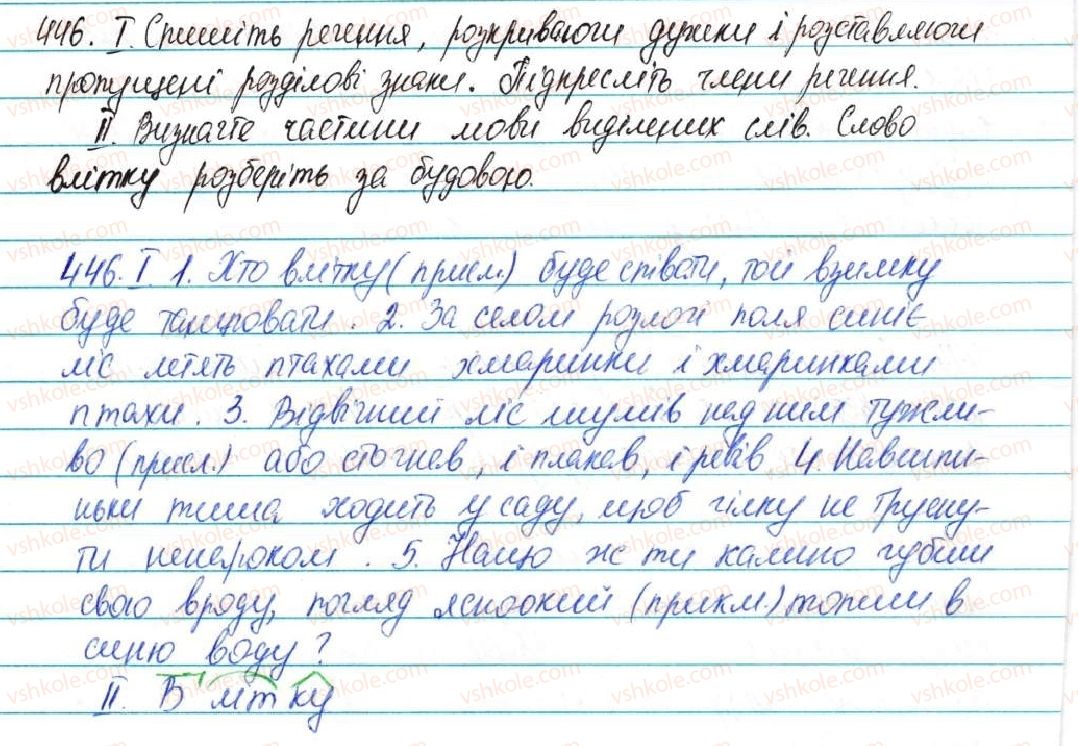 446. I. Спишіть речення, розкриваючи дужки і розставляючи
пропущені розділові знаки. Підкресліть члени речення.
II. Визначте частини мови виділених слів. Слово
влітку розберіть за будовою.
446. I. 1. Хто влітку (присл.) буде співати, той взимку
буде танцювати. 2. За селом розлогі поля синіє
ліс летять птахами хмаринки і хмаринками
птахи. 3. Відвічний ліс шумів над ним тужли-
во (присл.) або стогнев, і плакав, і ревів 4. Навшпи-
ньки тиша ходить у саду, щоб гілку не трусну-
ти ненароком. 5. Нащо ж ти калино губиш
свою вроду, погляд ясноокий (прикм.) топиш в
синю воду?
II. Влітку